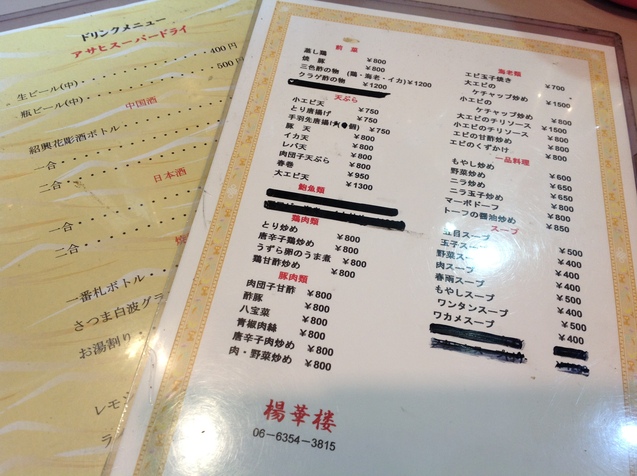 ドリンクメニュー
アサヒスーパードライ
生ビール(中)・・・・・・・・400円
瓶ビール(中)・・・・・・・・500円
中国酒
紹興花彫酒ボトル・・
一合・・・・・
二合・・・・・
日本酒
一合・・・・・
二合・・・・・
焼
一番札ボトル・・・
さつま白波グラ
お湯割り・・
レモ
前菜
蒸し鶏 ¥800
焼豚 ¥800
三色酢の物 (鶏・海老・イカ)¥1200
クラゲ酢の物 ¥1200
天ぷら
小エビ天 ¥750
とり唐揚げ ¥750
手羽先唐揚げ ¥750
豚天 ¥800
イカ天 ¥800
レバ天 ¥800
肉団子天ぷら ¥800
春巻 ¥950
大エビ天 ¥1300
鮑魚類
鶏肉類
とり炒め ¥800
唐辛子鶏炒め ¥800
うずら卵のうま煮 ¥800
鶏甘酢炒め ¥800
豚肉類
肉団子甘酢 ¥800
酢豚 ¥800
八宝菜 ¥800
青椒肉絲 ¥800
唐辛子肉炒め ¥800
肉・野菜炒め ¥800
海老類
エビ玉子焼き ¥700
大エビの
ケチャップ炒め ¥1500
小エビの
ケチャップ炒め ¥800
大エビのチリソース ¥1500
小エビのチリソース ¥800
エビの甘酢炒め ¥800
エビのくずかけ ¥800
一品料理
もやし炒め ¥500
野菜炒め ¥600
ニラ炒め ¥600
ニラ玉子炒め ¥650
マーボドーフ ¥800
トーフの醤油炒め ¥850
スープ
五目スープ ¥500
玉子スープ ¥400
野菜スープ ¥400
肉スープ ¥400
春雨スープ ¥500
もやしスープ ¥400
ワンタンスープ ¥500
ワカメスープ ¥400
楊華楼
06-6354-3815